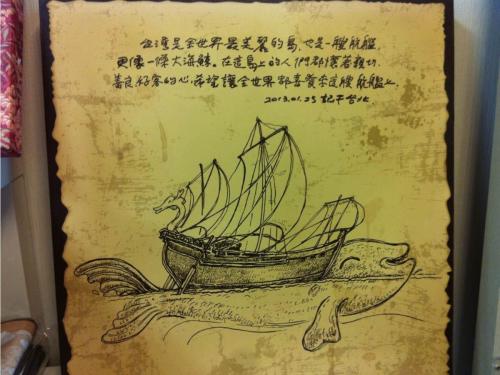 台灣是全世界最美麗的島,也是一艘航艦,
更像一條大海鯨。在這島上的人們都懷著親切、
善良好客的心,希望讓全世界都喜愛來這艘航艦上。
2013.01.25 記于台北